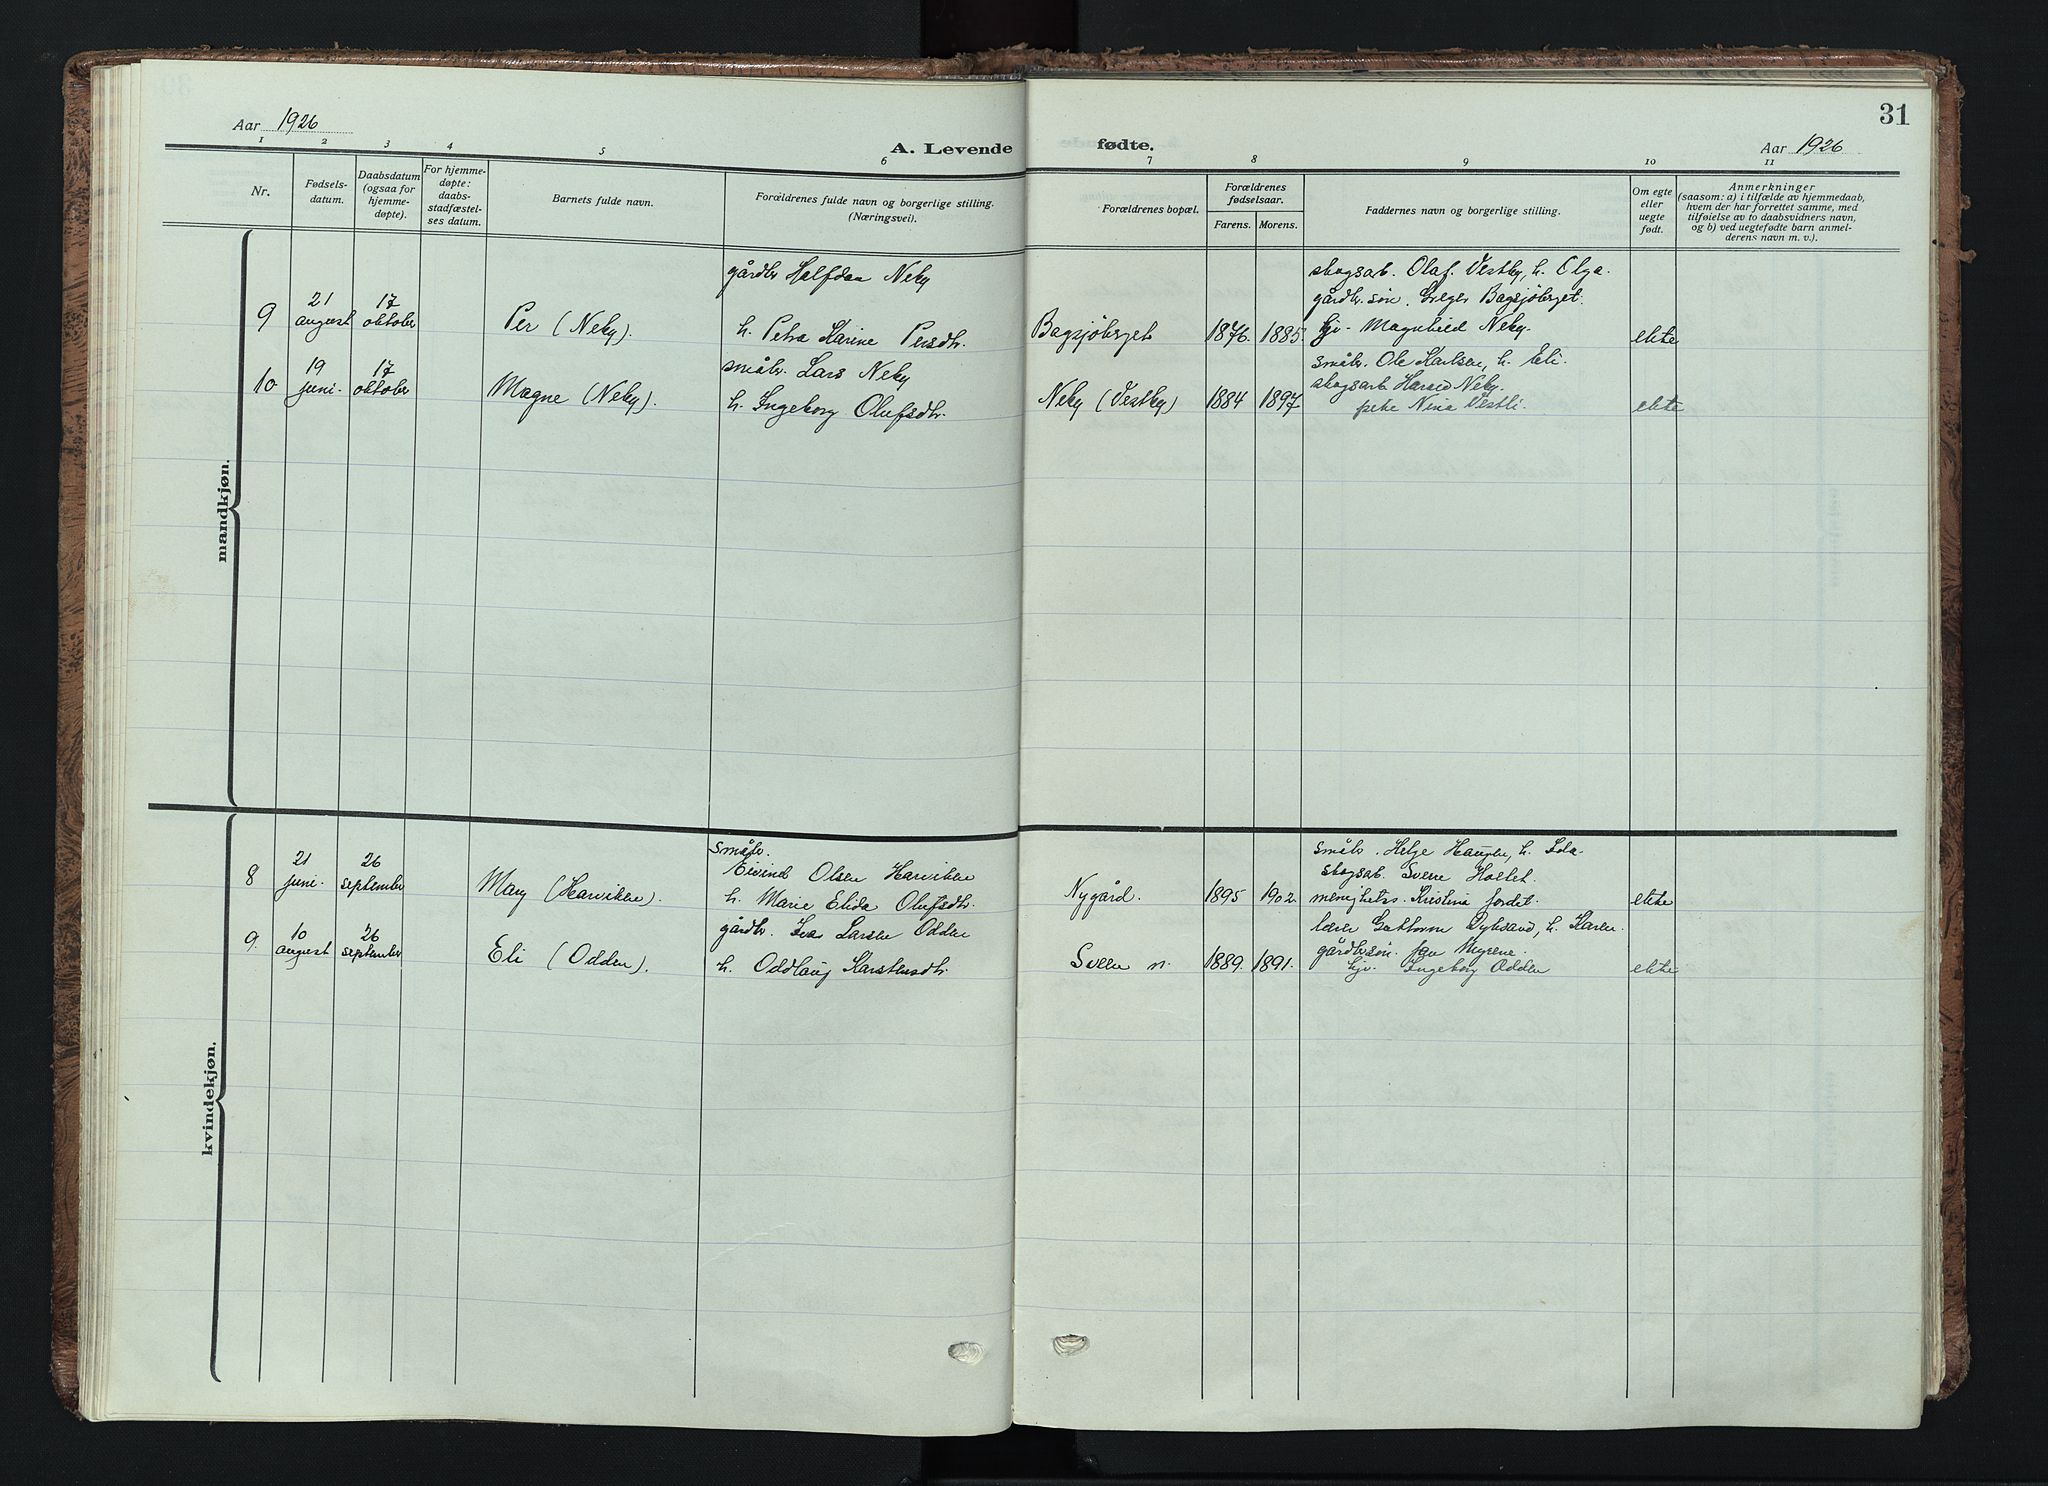 Aar 1926
A. Levende
1 2 3 4 5 6
Nr.
Fødsels-
datum.
Daabsdatum
(ogsaa for
hjemme-
døpte).
For hjemme-
døpte:
daabs-
stadfæstel-
ses datum.
Barnets fulde navn.
Forældrenes fulde navn og borgerlige stilling.
(Næringsvei).
mandkjøn.
gårdbr Halfdan Neby
9 21 august 17 oktober Per (Neby). h. Petra Karine Persdtr.
småbr. Lars Neby
10 19 juni- 17 oktober Magne (Neby). h. Ingeborg Olufsdtr.
kvindekjøn.
småbr.
Eivind Olsen Harviken
8 21 juni- 26 september Mary (Harviken). h. Marie Elida Olufsdtr.
gårdbr. Ivar Larsen Odden
9. 10 august 26 september Eli (Odden). h. Oddlaug Karstensdtr.
31
fødte.
Aar 1926
7 8 9 10 11
Forældrenes bopæl.
Forældrenes
fødselsaar.
Farens. Morens.
Faddernes navn og borgerlige stilling.
Om egte
eller
uegte
født.
Anmerkninger
(saasom: a) i tilfælde av hjemmedaab,
hvem der har forrettet samme, med
tilføielse av to daabsvidners navn,
og b) ved uegtefødte barn anmel-
derens navn m. v.).
skogsarb. Olaf Vestby, h. Olga.
gårdbr. søn. Greger Bagsjöberget.
Bagsjöberget 1876. 1885. Magnhild Neby. ekte
småbr. Ole Karlsen, h. Eli.
skogsarb Harald Neby.
Neby (Vestby) 1884 1897 pike Nina Vestli. ekte
småbr. Helge Haugen, h. Ida
skogsarb. Sverre Holtet.
Nygård. 1895 1902. menighetss. Kristina Jordet. ekte
lærer Guttorm Dybsand, h. Karen
gårdbrsøn. Jan Myrene
Sveen n. 1889. 1891. Ingeborg Odden ekte